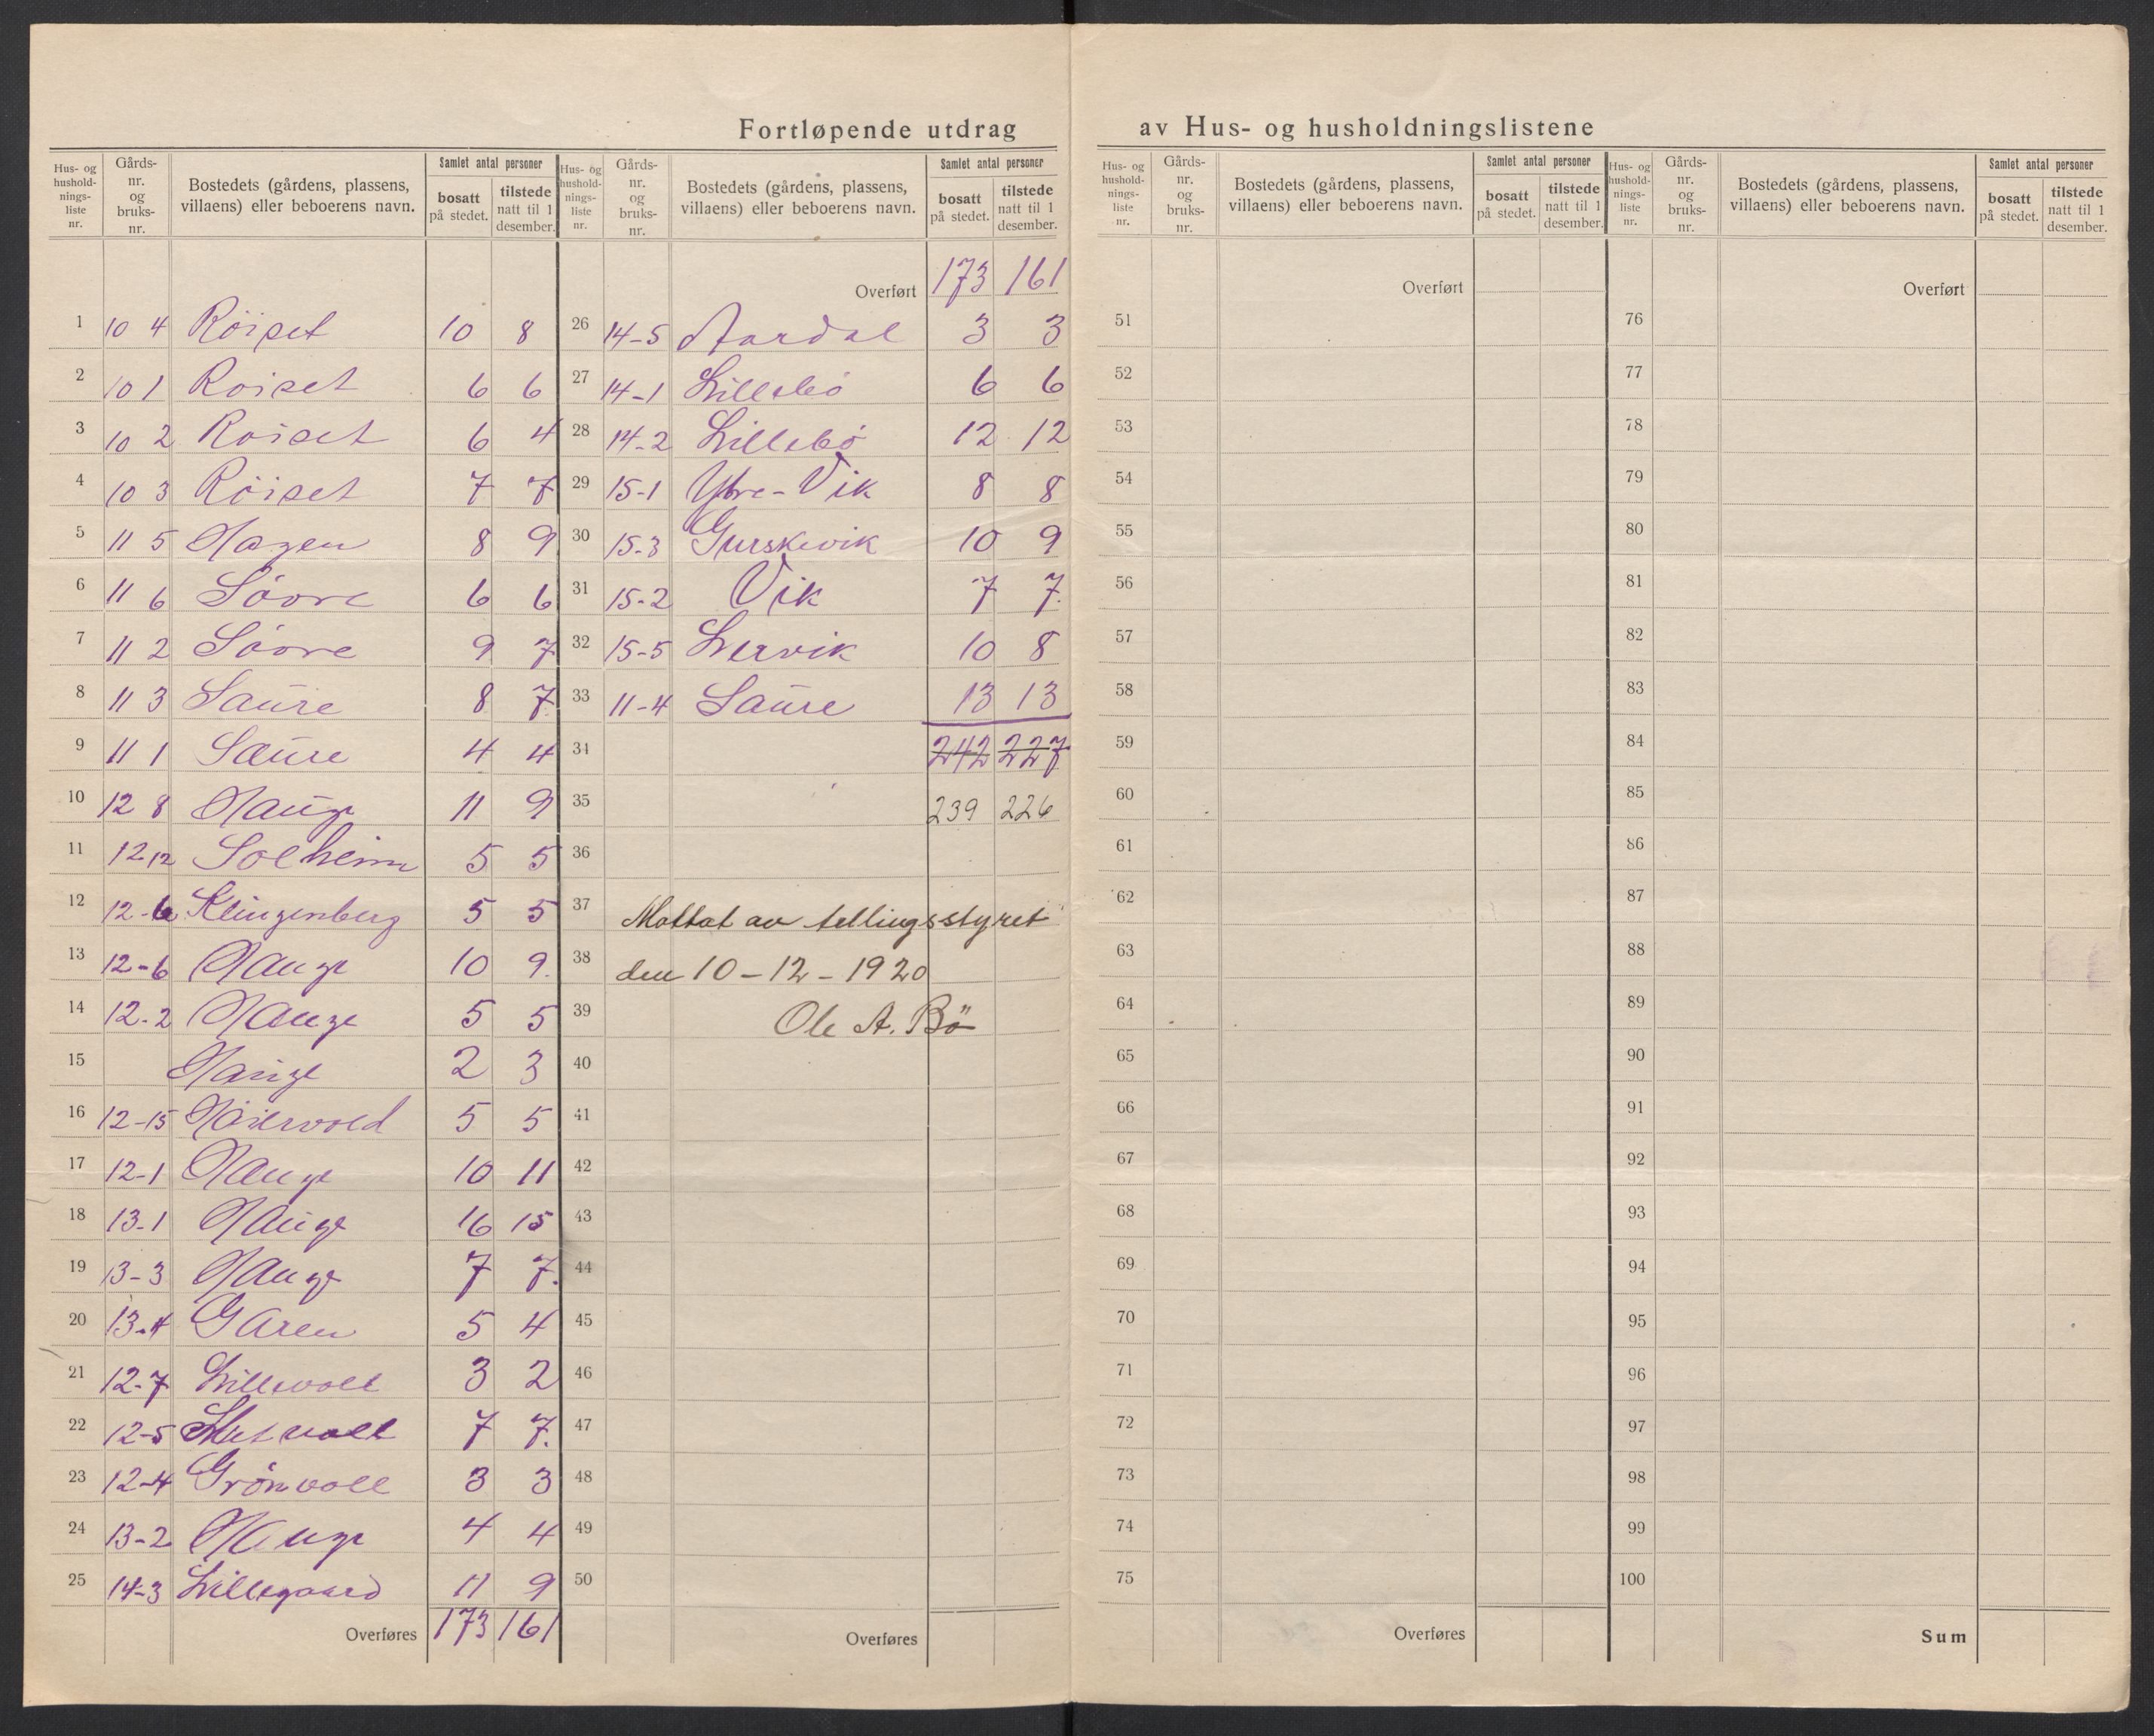 Fortløpende utdrag av Hus- og husholdningslistene
Hus- og hushold-nings-liste nr. Gårds-nr. og bruks-nr. Bostedets (gårdens, plassens, villaens) eller beboerens navn. Samlet antal personer bosatt på stedet. tilstede natt til 1 desember.
1 10 4 Röiset 10 8
2 10 1 Roiset 6 6
3 10 2 Roiset 6 4
4 10 3 Röiset 7 7
5 11 5 Hagen 8 9
6 11 6 Söore 6 6
7 11 2 Söore 9 7
8 11 3 Saure 8 7
9 11 1 Saure 4 4
10 12 8 Hauge 11 9
11 12 12 Solheim 5 5
12 12-6 Klingenberg 5 5
13 12-6 Hauge 10 9.
14 12-2 Hauge 5 5
15 Hauge 2 3
16 12-15 Höiervold 5 5
17 12-1 Hauge 10 11
18 13-1 Hauge 16 15
19 13-3 Hauge 7 7.
20 13-4 Garen 5 4
21 12-7 Lillevoll 3 2
22 12-5 7 7.
23 12-4 Grönvoll 3 3
24 13-2 Hauge 4 4
25 14-3 Lillegaard 11 9
Overføres 173 161
Hus- og hushold-nings-liste nr. Gårds-nr. og bruks-nr. Bostedets (gårdens, plassens, villaens) eller beboerens navn. Samlet antal personer bosatt på stedet. tilstede natt til 1 desember.
Overført 173 161
26 14-5 Aardal 3 3
27 14-1 Lillebö 6 6
28 14-2 Lillebö 12 12
29 15-1 Ytre-Vik 8 8
30 15-3 Gurskevik 10 9
31 15-2 Vik 7 7.
32 15-5 Lervik 10 8
33 11-4 Saure 13 13
34 242 227
35 239 226
36
37 Mottat av tellingsstyret
38 den 10-12-1920
39 Ole A. Bö
40
41
42
43
44
45
46
47
48
49
50
Overføres
Hus- og hushold-nings-liste nr. Gårds-nr. og bruks-nr. Bostedets (gårdens, plassens, villaens) eller beboerens navn. Samlet antal personer bosatt på stedet. tilstede natt til 1 desember.
Overført
51
52
53
54
55
56
57
58
59
60
61
62
63
64
65
66
67
68
69
70
71
72
73
74
75
Overføres
Hus- og hushold-nings-liste nr. Gårds-nr. og bruks-nr. Bostedets (gårdens, plassens, villaens) eller beboerens navn. Samlet antal personer bosatt på stedet. tilstede natt til 1 desember.
Overført
76
77
78
79
80
81
82
83
84
85
86
87
88
89
90
91
92
93
94
95
96
97
98
99
100
Sum